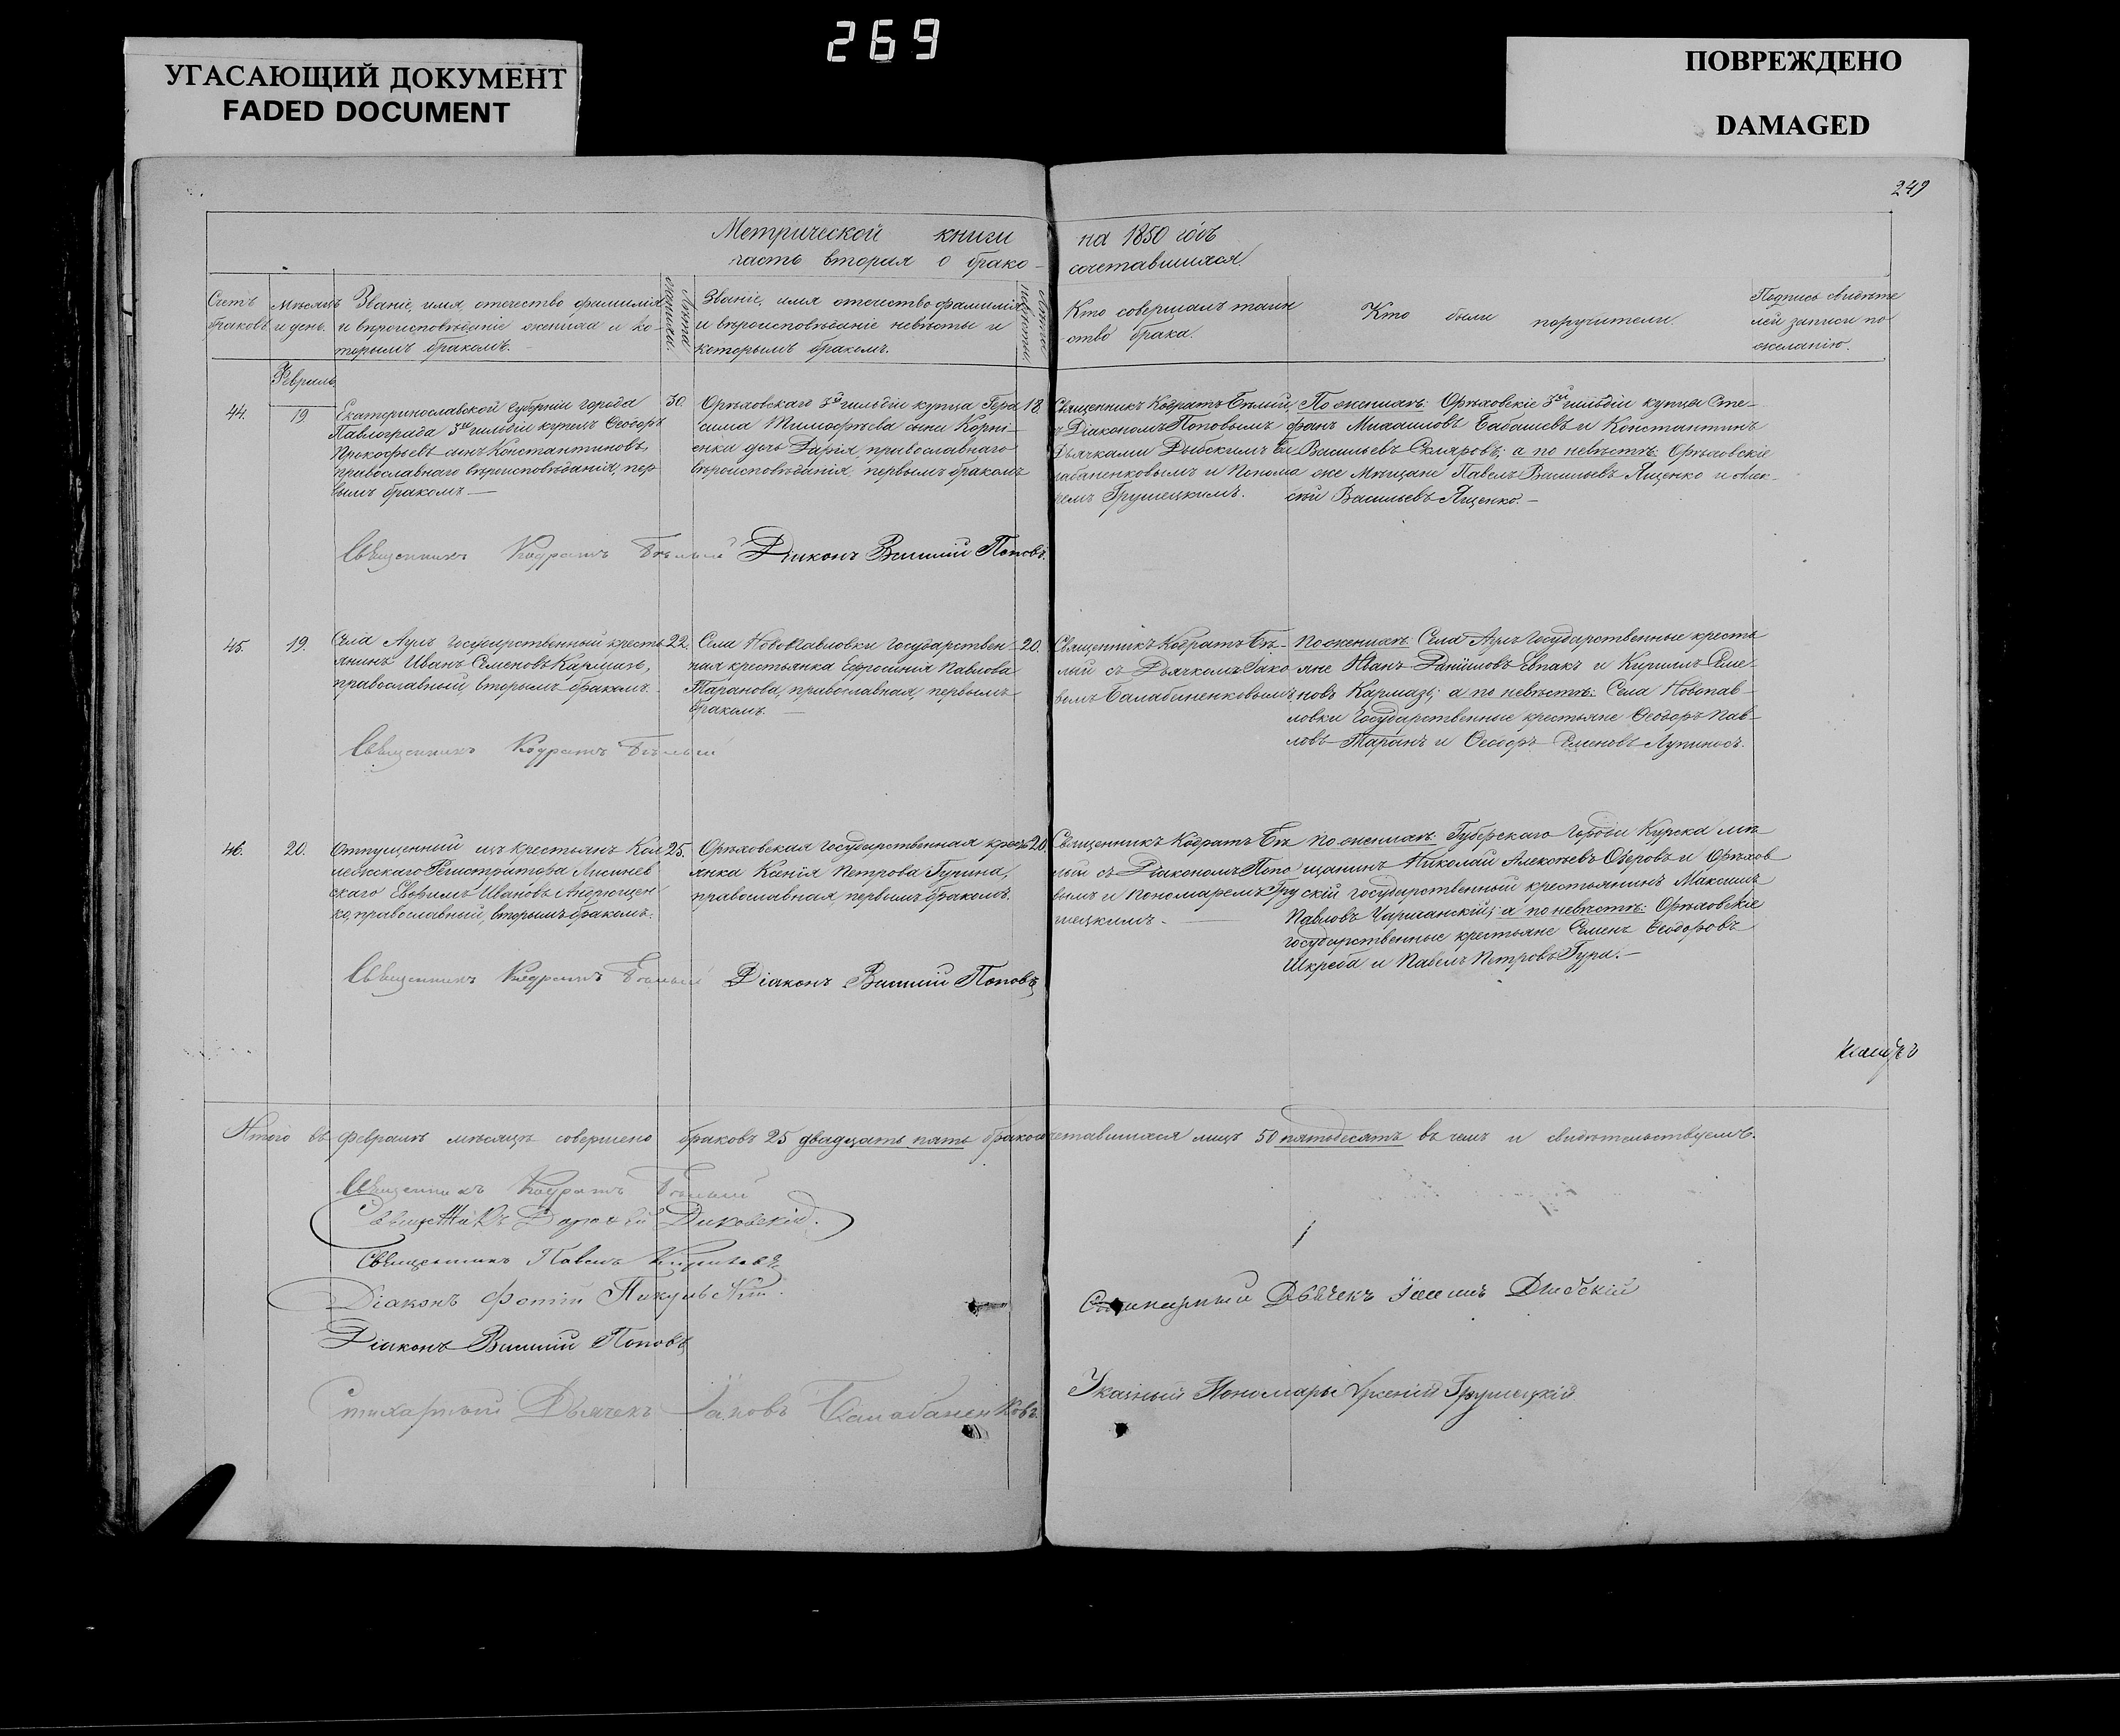 269
УГАСАЮЩИЙ ДОКУМЕНТ
FADED DOCUMENT
ПОВРЕЖДЕНО
DAMAGED
249
Метрической книги на 1850 годъ
часть вторая о брако- сочетавшихся.
Счетъ браковъ
Мѣсяцъ и день.
Званіе, имя, отечество фамилія
и вѣроисповѣданіе жениха и ко-
торымъ бракомъ.
Лѣта жениха.
Званіе, имя отечество фамилія
и вѣроисповѣданіе невѣсты и
которымъ бракомъ.
Лѣта невѣсты.
Кто совершалъ таин
ство брака.
Кто были поручители.
Подпись свидѣте
лей записи по
желанію.
Февраль
44.
19
Екатеринославской Губерніи города
Павлограда 3й гильдіи купецъ Ѳеодоръ
Прокофьевъ сынъ Константиновъ,
православнаго вѣроисповѣданія, пер
вымъ бракомъ.—
30.
Орѣховскаго 3й гильдіи купца Гера
сима Тимофѣева сына Корні-
енка дочь Дарія, православнаго
вѣроисповѣданія, первымъ бракомъ
18.
Священникъ Кодратъ Бѣлый,
съ Діакономъ Поповымъ
Дьячками Дибскимъ Ба
лабаненковымъ и Понома
ремъ Грушецкимъ.
По женихѣ: Орѣховскіе 3й гильдіи купцы Сте-
фанъ Михаиловъ Бабашевъ и Константинъ
Васильевъ Скляровъ; а по невѣстѣ: Орѣховскіе
же Мѣщане Павелъ Васильевъ Яценко и Алек-
сѣй Васильевъ Яценко.—
Священникъ Кодратъ Бѣлый Діаконъ Василій Поповъ.
45.
19.
Села Аулъ Государственный кресть
янинъ Иванъ Семеновъ Кармазь,
православный, вторымъ бракомъ.
22.
Села Новопавловки Государствен-
ная крестьянка Ефросинія Павлова
Таранова, православная, первымъ
бракомъ.—
20.
Священникъ Кодратъ Бѣ-
лый съ Дьячкомъ Іако
вомъ Балабаненковымъ
По женихѣ: Села Аулъ Государственные кресть
яне Иванъ Даниловъ Евпакъ и Кириллъ Семе-
новъ Кармазь; а по невѣстѣ: Села Новопав-
ловки Государственные крестьяне Ѳеодоръ Пав-
ловъ Таранъ и Ѳеодоръ Семеновъ Лупиносъ.
Священникъ Кодратъ Бѣлый
46.
20.
Отпущенный изъ крестьянъ Кол
лежскаго Регистратора Лисинев
скаго Евфимъ Ивановъ Андрющен
ко, православный, вторымъ бракомъ.
25.
Орѣховская Государственная кресть
янка Ксенія Петрова Гурина,
православная, первымъ бракомъ.
20.
Священникъ Кодратъ Бѣ
лый съ Діакономъ Попо
вымъ и Пономаремъ Гру
шецкимъ.—
По женихѣ: Губерскаго Города Курска мѣ
щанинъ Николай Алексѣевъ Озеровъ и Орѣхов
скій Государственный крестьянинъ Максимъ
Павловъ Царичанскій; а по невѣстѣ: Орѣховскіе
Государственные крестьяне Семенъ Ѳеодоровъ
Шкреба и Павелъ Петровъ Гура.—
Священникъ Кодратъ Бѣлый Діаконъ Василій Поповъ
Итого въ Февралѣ мѣсяцѣ совершено браковъ 25 двадцать пять бракосочетавшихся лицъ 50 пятьдесятъ въ чемъ и свидѣтельствуемъ.
Священникъ Кодратъ Бѣлый
Священникъ Дороѳей Диковскій.
Священникъ Павелъ
Діаконъ Фотій
Діаконъ Василій Поповъ
Стихарный Дьячекъ Іаковъ Балабаненковъ.
Стихарный Дьячекъ Дибскій
Указный Пономарь Арсеній Грушецкій